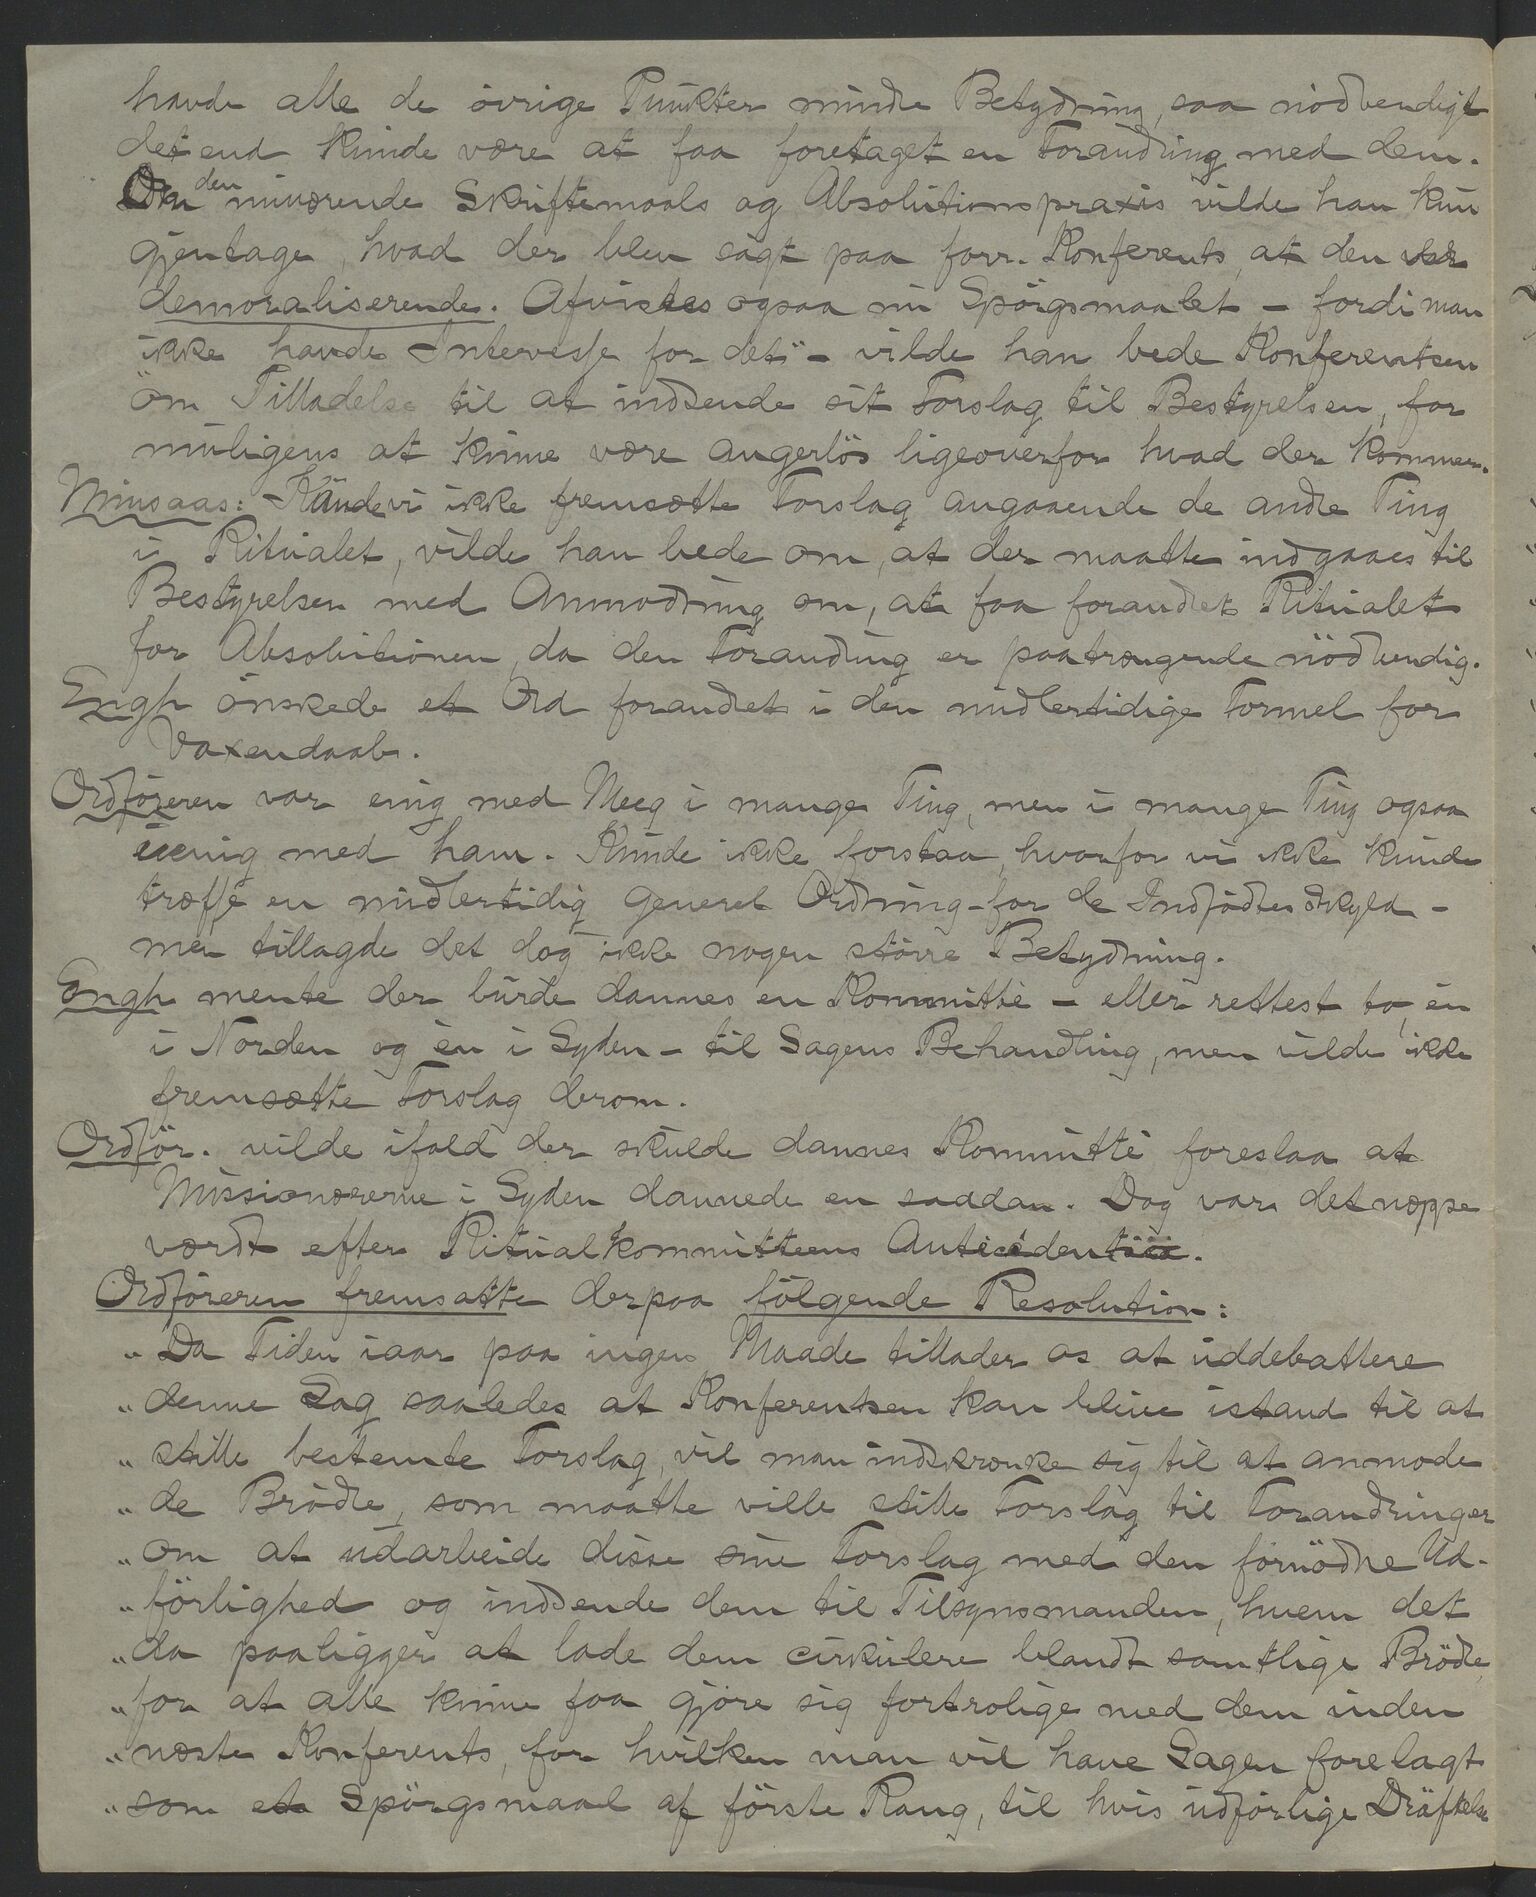 havde alle de övrige Punkter mindre Betydning, saa nödvendigt
det end kunde være at faa foretaget en Forandring med dem.
Om den nuværende Skriftemaals og Absolutionspraxis vilde han kun
gjentage, hvad der blev sagt paa forr. Konferents, at den var
demoraliserende. Afvistes ogsaa nu Spörgsmaalet – fordi man
ikke havde Interesse for det" – vilde han bede Konferentsen
om Tilladelse til at indsende sit Forslag til Bestyrelsen, for
muligens at kunne være angerlös ligeoverfor hvad der kommer.
Minsaas: Kunde vi ikke fremsætte Forslag angaaende de andre Ting
i Ritualet, vilde han bede om, at der maatte indgaaes til
Bestyrelsen med Anmodning om, at faa forandret Ritualet
for Absolutionen, da den Forandring er paatrængende nödvendig.
Engh önskede et Ord forandret i den midlertidige Formel for
Voxendaab.
Ordföreren var enig med Meeg i mange Ting, men i mange Ting ogsaa
uenig med ham. Kunde ikke forstaa, hvorfor vi ikke kunde
træffe en midlertidig generel Ordning – for de Indfödtes Skyld –
men tillagde det dog ikke nogen större Betydning.
Engh mente der burde dannes en Kommitté – eller rettest to, én
i Norden og én i Syden – til Sagens Behandling, men vilde ikke
fremsætte Forslag derom.
Ordför. vilde ifald der skulde dannes Kommitté foreslaa at
Missionærerne i Syden dannede en saadan. Dog var det næppe
værdt efter Ritualkommitteens Antecedentia.
Ordföreren fremsatte derpaa fölgende Resolution:
"Da Tiden iaar paa ingen Maade tillader os at uddebattere
"denne Sag saaledes at Konferentsen kan blive istand til at
"stille bestemte Forslag, vil man indskrænke sig til at anmode
"de Brödre, som maatte ville stille Forslag til Forandringer
"om at udarbeide disse sine Forslag med den fornödne Ud-
"förlighed og indsende dem til Tilsynsmanden, hvem det
"da paaligger at lade dem cirkulere blandt samtlige Brödre,
"for at alle kunne faa gjöre sig fortrolige med dem inden
"næste Konferents, for hvilken man vil have Sagen forelagt
"som et Spörgsmaal af förste Rang, til hvis udförlige Dröftelse